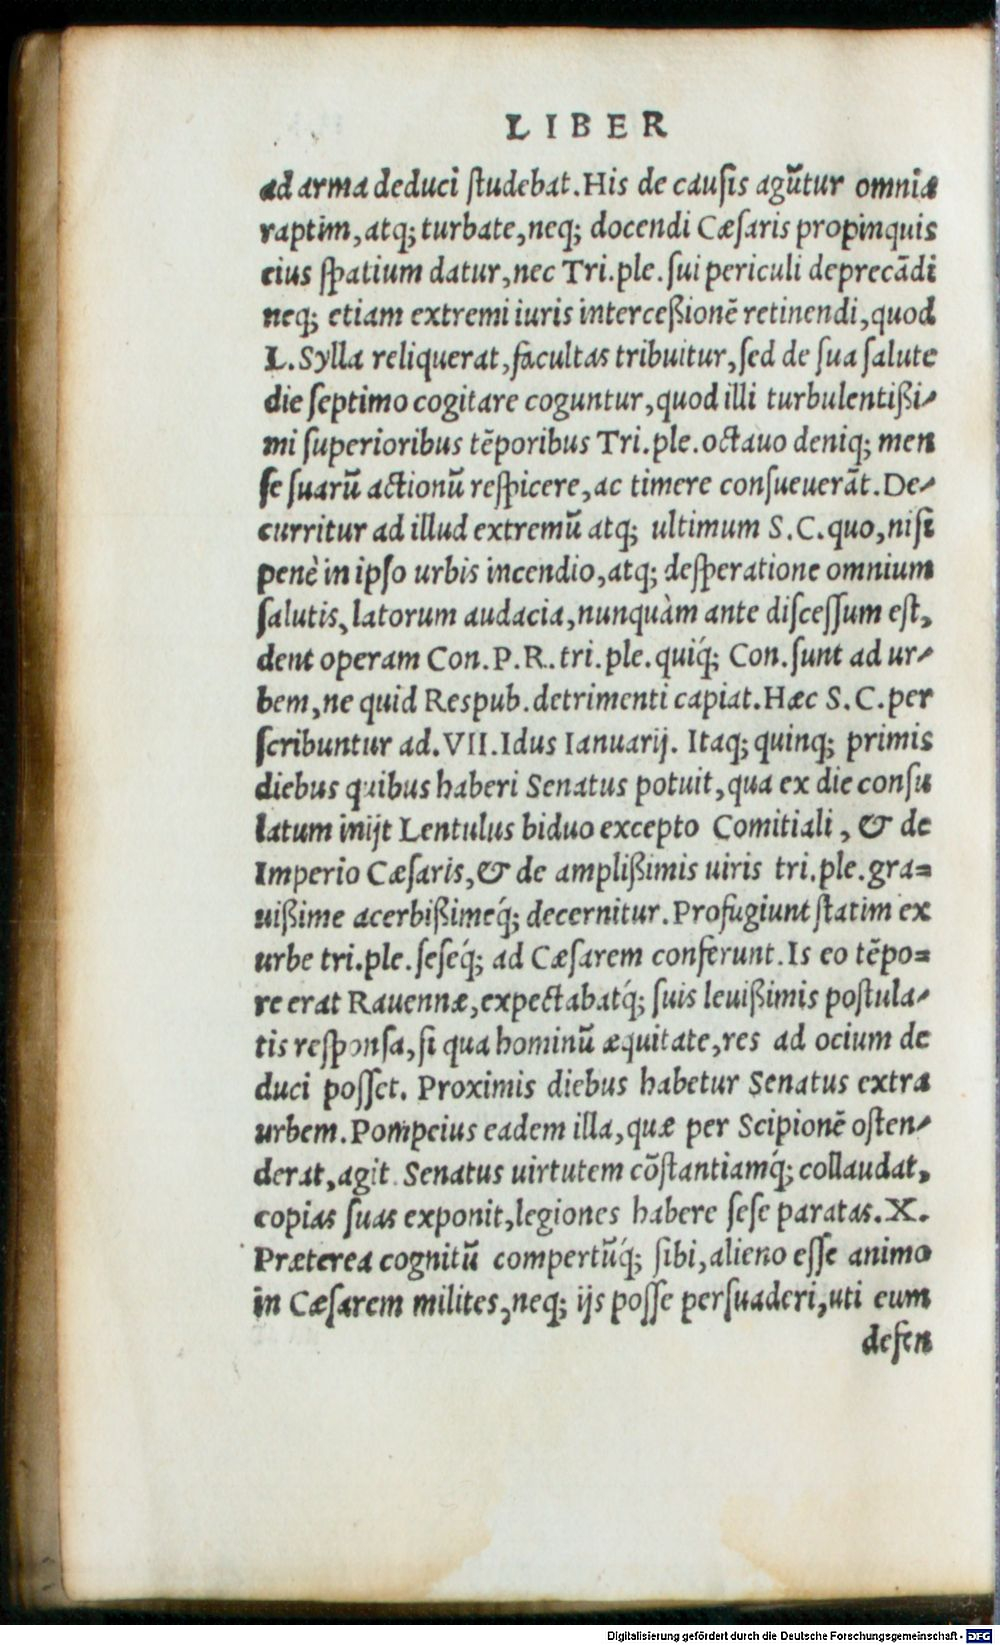 LIBER
ad arma deduci ſtudebat. His de cauſis agũtur omnia
raptim, atq; turbate, neq; docendi Cæſaris propinquis
eius ſpatium datur, nec Tri. ple. ſui periculi deprecãdi
neq; etiam extremi iuris interceßionẽ retinendi, quod
L. Sylla reliquerat, facultas tribuitur, ſed de ſua ſalute
die ſeptimo cogitare coguntur, quod illi turbulentißi-
mi ſuperioribus tẽporibus Tri. ple. octauo deniq; men
ſe ſuarũ actionũ reſpicere, ac timere conſueuerãt. De-
curritur ad illud extremũ atq; ultimum S.C. quo, niſi
penè in ipſo urbis incendio, atq; deſperatione omnium
ſalutis, latorum audacia, nunquàm ante diſceſſum eſt,
dent operam Con. P. R. tri. ple. quiq́; Con. ſunt ad ur-
bem, ne quid Respub. detrimenti capiat. Hæc S.C. per
ſcribuntur ad. VII. Idus Ianuarij. Itaq; quinq; primis
diebus quibus haberi Senatus potuit, qua ex die conſu
latum inijt Lentulus biduo excepto Comitiali, & de
Imperio Cæſaris, & de amplißimis uiris tri. ple. gra=
uißime acerbißimeq́; decernitur. Profugiunt ſtatim ex
urbe tri. ple. ſeſeq́; ad Cæſarem conferunt. Is eo tẽpo=
re erat Rauennæ, expectabatq́; ſuis leuißimis poſtula-
tis reſponſa, ſi qua hominũ æquitate, res ad ocium de
duci poſſet. Proximis diebus habetur Senatus extra
urbem. Pompeius eadem illa, quæ per Scipionẽ oſten-
derat, agit. Senatus uirtutem cõſtantiamq́; collaudat,
copias ſuas exponit, legiones habere ſeſe paratas. X.
Præterea cognitũ compertũq́; ſibi, alieno eſſe animo
in Cæſarem milites, neq; ijs poſſe perſuaderi, uti eum
defen
Digitalisierung gefördert durch die Deutsche Forschungsgemeinschaft - DFG